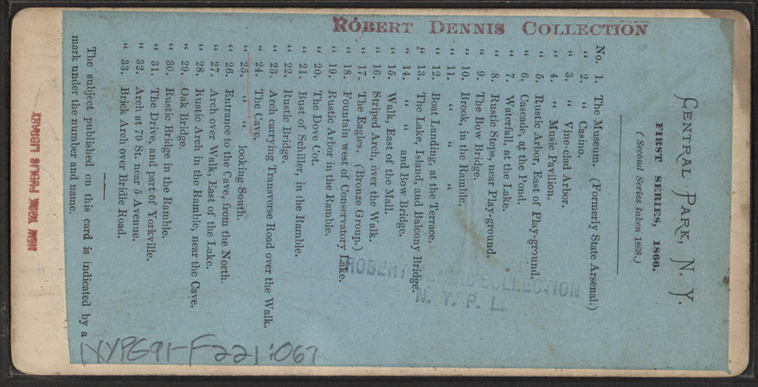 ROBERT DENNIS COLLECTION
CENTRAL PARK, N. Y.
FIRST SERIES, 1866.
(Second Series taken 1868.)
No. 1. The Museum. (Formerly State Arsenal.)
" 2. " Casino.
" 3. " Vine-clad Arbor.
" 4. " Music Pavilion.
" 5. Rustic Arbor, East of Play-ground.
" 6. Cascade, at the Pond.
" 7. Waterfall, at the Lake.
" 8. Rustic Steps, near Play-ground.
" 9. The Bow Bridge.
" 10. Brook, in the Ramble.
" 11. " " "
" 12. Boat Landing, at the Terrace.
" 13. The Lake, Island, and Balcony Bridge.
" 14. " " and Bow Bridge.
" 15. Walk, East of the Mall.
" 16. Striped Arch, over the Walk.
" 17. The Eagles. (Bronze Group.)
" 18. Fountain west of Conservatory Lake.
" 19. Rustic Arbor in the Ramble.
" 20. The Dove Cot.
" 21. Bust of Schiller, in the Ramble.
" 22. Rustic Bridge.
" 23. Arch carrying Transverse Road over the Walk.
" 24. The Cave.
" 25. " " looking South.
" 26. Entrance to the Cave, from the North.
" 27. Arch over Walk, East of the Lake.
" 28. Rustic Arch in the Ramble, near the Cave.
" 29. Oak Bridge.
" 30. Rustic Bridge in the Ramble.
" 31. The Drive, and part of Yorkville.
" 32. Arch at 79 St. near 5 Avenue.
" 33. Brick Arch over Bridle Road.
The subject published on this card is indicated by a
mark under the number and name.
ROBERT DENNIS COLLECTION
N. Y. P. L.
NEW YORK PUBLIC LIBRARY
NYPG91-F221:067